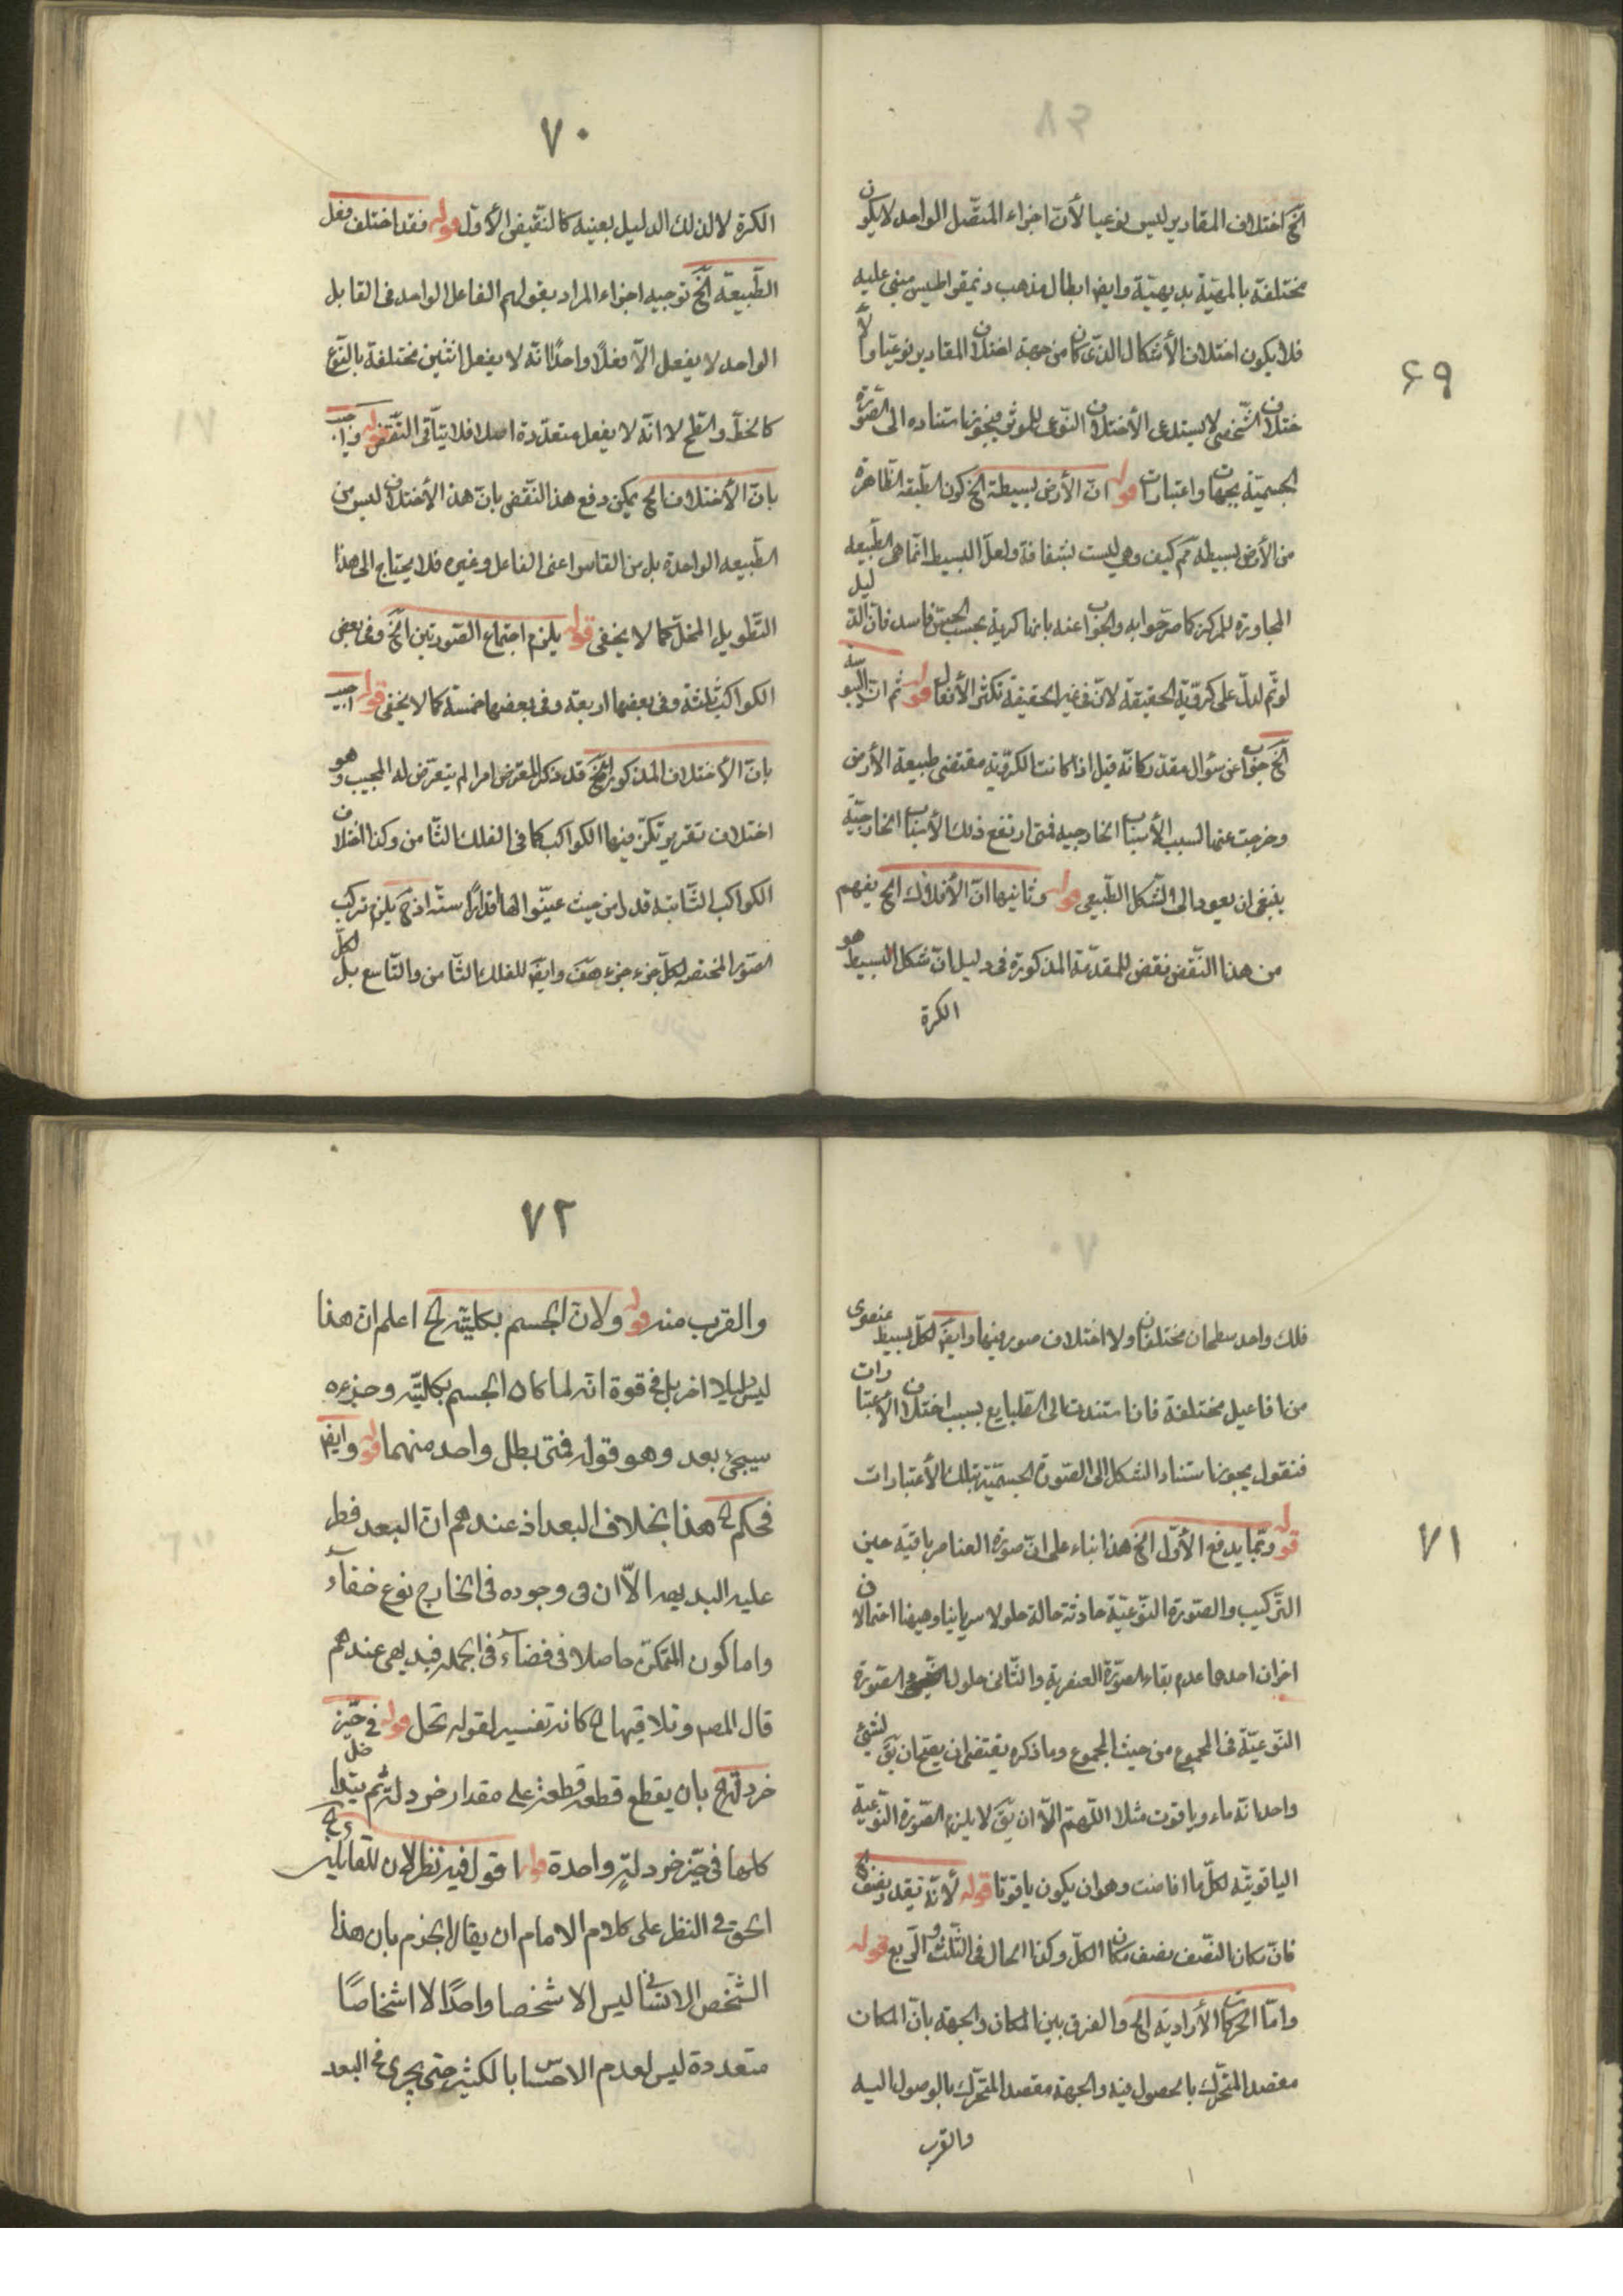 ٦٩
الخ اختلاف المقادير ليس نوعيا لأنّ اجزاء المتصّل الواحد لا يكون
مختلفة بالمهيّة بديهيّة وايضا ابطال مذهب ذيمقراطيس مبنى عليه
فلا يكون اختلاف الأشكال الذى كان من جهة اختلاف المقادير نوعيّا والأ
ختلاف الشّخصى لا يستدعى الأختلاف النّوعى للموثر فيجوز استناده الى الصّورة
الجسميّة بجهات واعتبارات قوله انّ الأرض بسيطة الخ كون الطّبقة الظّاهرة
من الأرض بسيطه مم كيف وهى ليست بشفافة ولعلّ البسيط انّما هى الطّبيعه
المجاورة للمركز كما صرّحوا به والجواب عنه بانها كرية بحسب الحسّ فاسد فانّ الدّليل
لو تم لدلّ على كرويّة الحقيقة لانّ فى غير الحقيقة تكثر الأفعال قوله ثم انّ اليبوسة
الخ جواب عن سؤال مقدّر كانّه قيل اذا كانت الكرويّة مقتضى طبيعة الأرض
وخرجت عنها لسبب الأسباب الخارجيه فمتى ارتفع ذلك الأسباب الخارجيّة
ينبغى ان يعود الى الشّكل الطّبيعى قوله وثانيها انّ الأفلاك الخ يفهم
من هذا النّقض نقض للمقدّمة المذكورة فى دليل انّ شكل البسيط هو
الكرة
٧٠
الكرة لا لذلك الدليل بعينه كالنّقيض الأوّل قوله فقد اختلف فعل
الطّبيعة الخ توجيه اجزاء المراد بقولهم الفاعل الواحد فى القابل
الواحد لا يفعل الّا فعلًا واحدًا انّه لا يفعل اثنين مختلفة بالنّوع
كالخطّ والسّطح لا انّه لا يفعل متعدّدة اصلا فلا يتأتّى النّقض قوله واجيب
بانّ الأختلاف الخ يمكن دفع هذا النّقض بانّ هذا الأختلاف ليس من
الطّبيعه الواحدة بل من القاسر اعنى الفاعل وغيره فلا يحتاج الى هذا
التّطويل المخلّ كما لا يخفى قوله يلزم اجتماع الصّورتين الخ وفى بعض
الكواكب ثلثة وفى بعضها اربعة وفى بعضها خمسة كما لا يخفى قوله اجيب
بانّ الأختلاف المذكور الخ قد ذكر المعترض امرا لم يتعرّض له المجيب وهو
اختلاف تقرير تكثر فيها الكواكب كما فى الفلك الثّامن وكذا اختلاف
الكواكب الثّابتة قدرا من حيث عيّنوا لها اقدارًا ستّه اذ ح يلزم تركب
الصّور المختصه لكلّ جزء جزء هف وايضا للفلك الثّامن والتّاسع بل لكلّ
٧١
فلك واحد سطحان مختلفان ولا اختلاف صور فيها وايضا لكلّ بسيط عنصرى
من افاعيل مختلفة فان استندت الى الطّبايع بسبب اختلاف الأعتبارات
فنقول يجوز استناد الشكل الى الصّورة الجسميّة بتلك الأعتبارات
قوله وبّما يدفع الأوّل الخ هذا بناء على انّ صورة العناصر باقية حين
التّركيب والصّورة النّوعيّة حادثة حالة حلولا سريانيا وهيهنا احتمالان
اخران احدهما عدم بقاء الصّورة العنصرية والثّانى حلول الصّورة
النّوعيّة فى المجموع من حيث المجموع وما ذكره يقتضى ان يصحّ ان يقَ لشئ
واحد انّه ماء وياقوت مثلا اللّهمّ الّا ان يقَ لا يلزم الصّورة النّوعيّة
الياقوتيّه لكلّ ما افاضت وهو ان يكون ياقوتا قوله لأنّه يتقدّر بنصف الخ
فانّ مكان النّصف نصف مكان الكلّ وكذا الحال فى الثّلث والرّبع قوله
وامّا الحركات الأراديّة الخ والفرق بين المكان والجهة بانّ المكان
مقصد المتحّرك بالحصول فيه والجهة مقصد المتحّرك بالوصول اليه
والقرب
٧٢
والقرب منه قوله ولانّ الجسم بكليّته الخ اعلم ان هذا
ليس دليلا اخر بل فى قوة انّه لما كان الجسم بكليّته وجزءه
سيجئ بعد وهو قوله فمتى بطل واحد منهما قوله وايضا
فحكم الخ هذا بخلاف البعد اذ عندهم ان البعد فطر
عليه البديهه الّا ان فى وجوده فى الخارج نوع خفاء
واما كون المتمكّن حاصلا فى فضاء فى الجمله فبديهى عندهم
قال المصـ وتلاقيها الخ كانه تفسير لقوله تحل قوله فى حيّز
خردلة الخ بان يقطع قطعه قطعة على مقدار خردلة ثم يتداخل
كلها فى حيّز خردلةٍ واحدة قوله اقول فيه نظر لان للقابل الخ
الحق فى النظر على كلام الامام ان يقال الجزم بان هذا
الشّخص الانسانى ليس الا شخصا واحدًا لا اشخاصًا
متعددة ليس لعدم الاحساس بالكثير حتى يجرى فى البعد